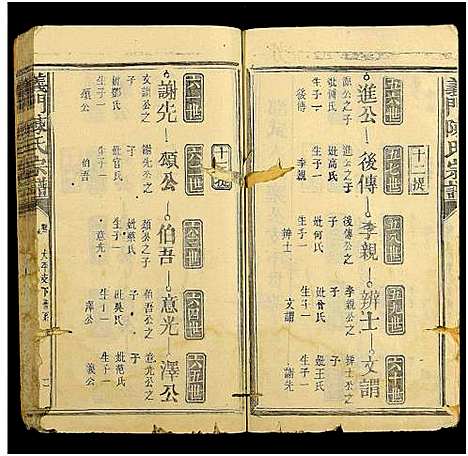 義門陳氏宗譜
十二撰
五十六世
進公
源公之
子
妣傅氏
生子一
後傳
五十七世
後傳
進公之
子
妣高氏
生子一
李親
李親
後傳公之
子
妣何氏
生子一
辨士
五十九世
辨士
李親公之
子
生子一
文謂
六十世
文謂
辨士公之
子
妣王氏
生子一
謝先
十二撰
六十一世
謝先
文謂公之
子
妣鄧氏
生子一
頌公
六十二世
頌公
謝先公之
子
妣官氏
生子一
伯吾
六十三世
伯吾
頌公之
子
生子一
意光
六十四世
意光
伯吾公之
子
妣吳氏
生子一
澤公
六十五世
澤公
意光公之
子
妣范氏
生子一
義門陳氏宗譜